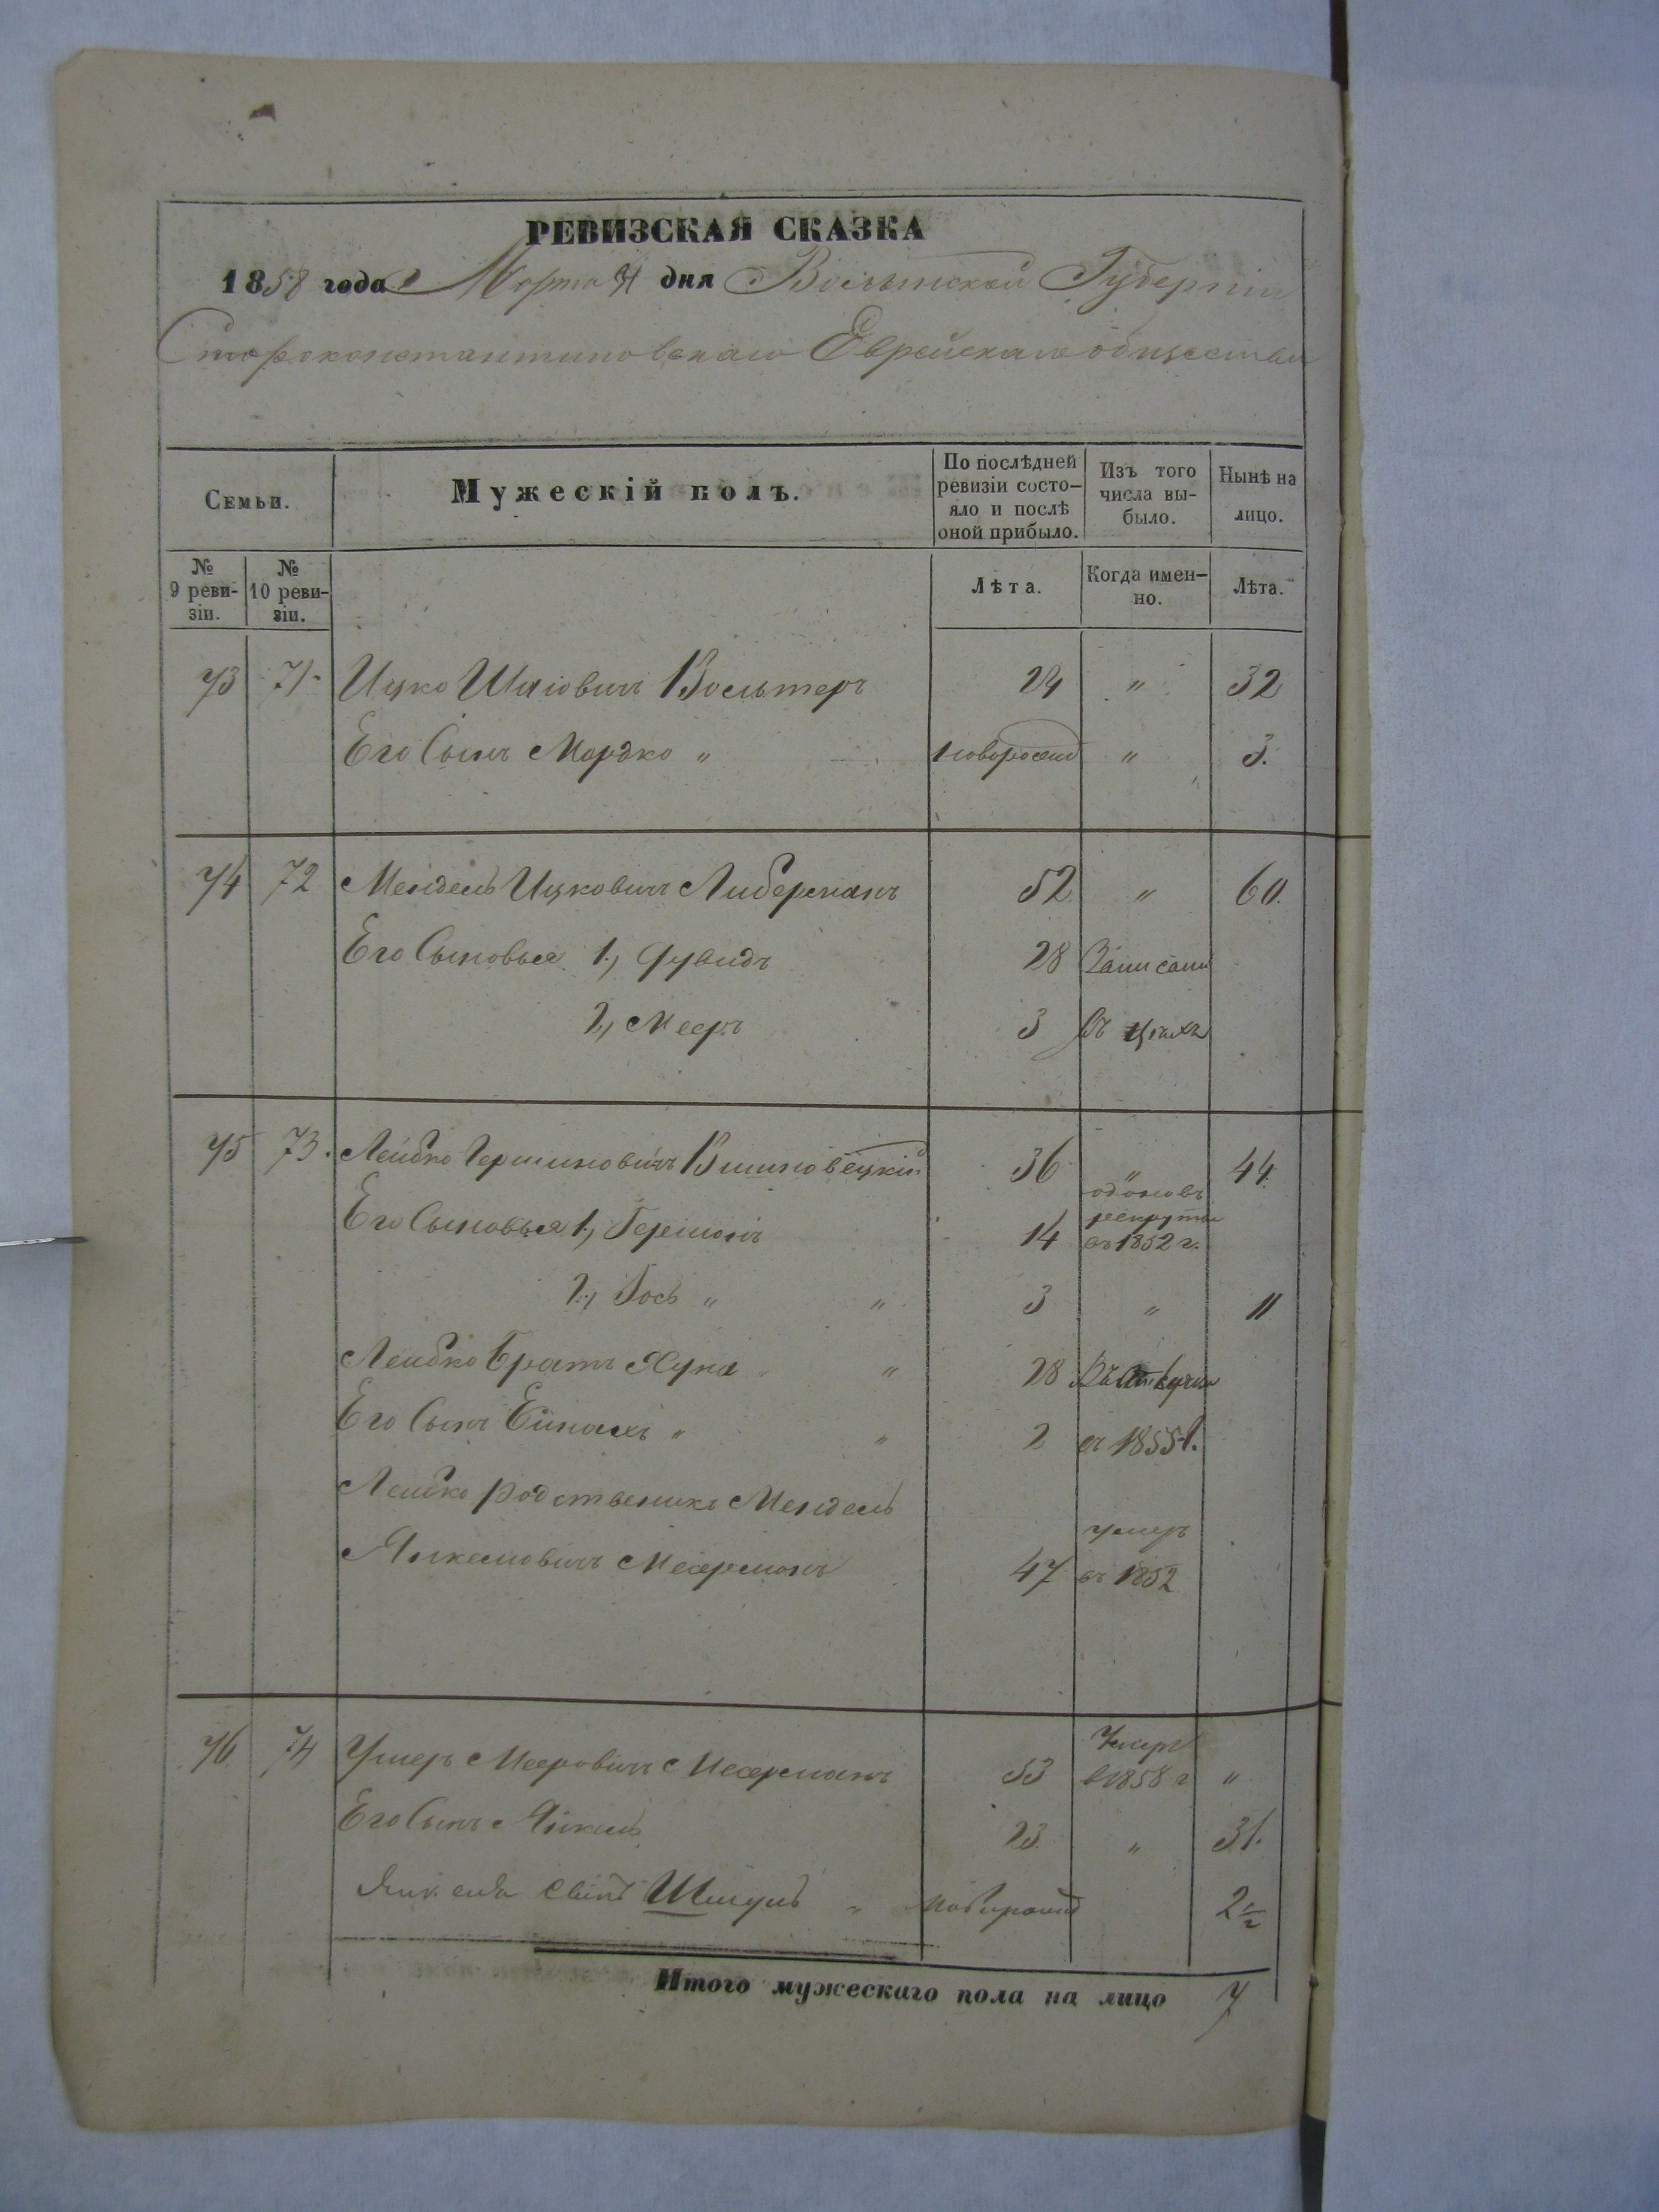 РЕВИЗСКАЯ СКАЗКА
1858 года Марта 31 дня Волынской Губернiи
Староконстантиновскаго Еврейскаго общества
Семьи.
Мужескiй полъ.
По послѣдней ревизiи состо-яло и послѣ оной прибыло.
Изъ того числа вы-было.
Нынѣ на лицо.
№ 9 реви-зiи.
№ 10 реви-зiи.
Лѣта.
Когда имен-но.
Лѣта.
73 71 Ицко Шліовичъ Вольтеръ 24 " 32
Его Сынъ Мордко " новорожд " 3.
74 72 Мендель Ицковичъ Либерманъ 52 " 60.
Его Сыновья 1, Дувидъ 28 Записаны
2, Мееръ 3 въ цехъ
75 73. Лейбко Гершиновичъ Вишновецкiй 36 " 44.
Его Сыновья 1, Гершонъ 14 отданъ въ рекруты въ 1852 г.
2, Іось " " 3 " 11
Лейбко братъ Хуна " " 28
Его Сынъ " " 2 въ 1855 г.
Лейбко родственикъ Мендель
Янкелювичъ Месерманъ 47 умеръ въ 1852
76 74 Ушеръ Мееровичъ Месерманъ 53 Умеръ в 1858 г "
Его Сынъ Янкель 23 " 31.
Янкеля Сынъ Шмуль " новорожд 2 1/2
Итого мужескаго пола на лицо 7